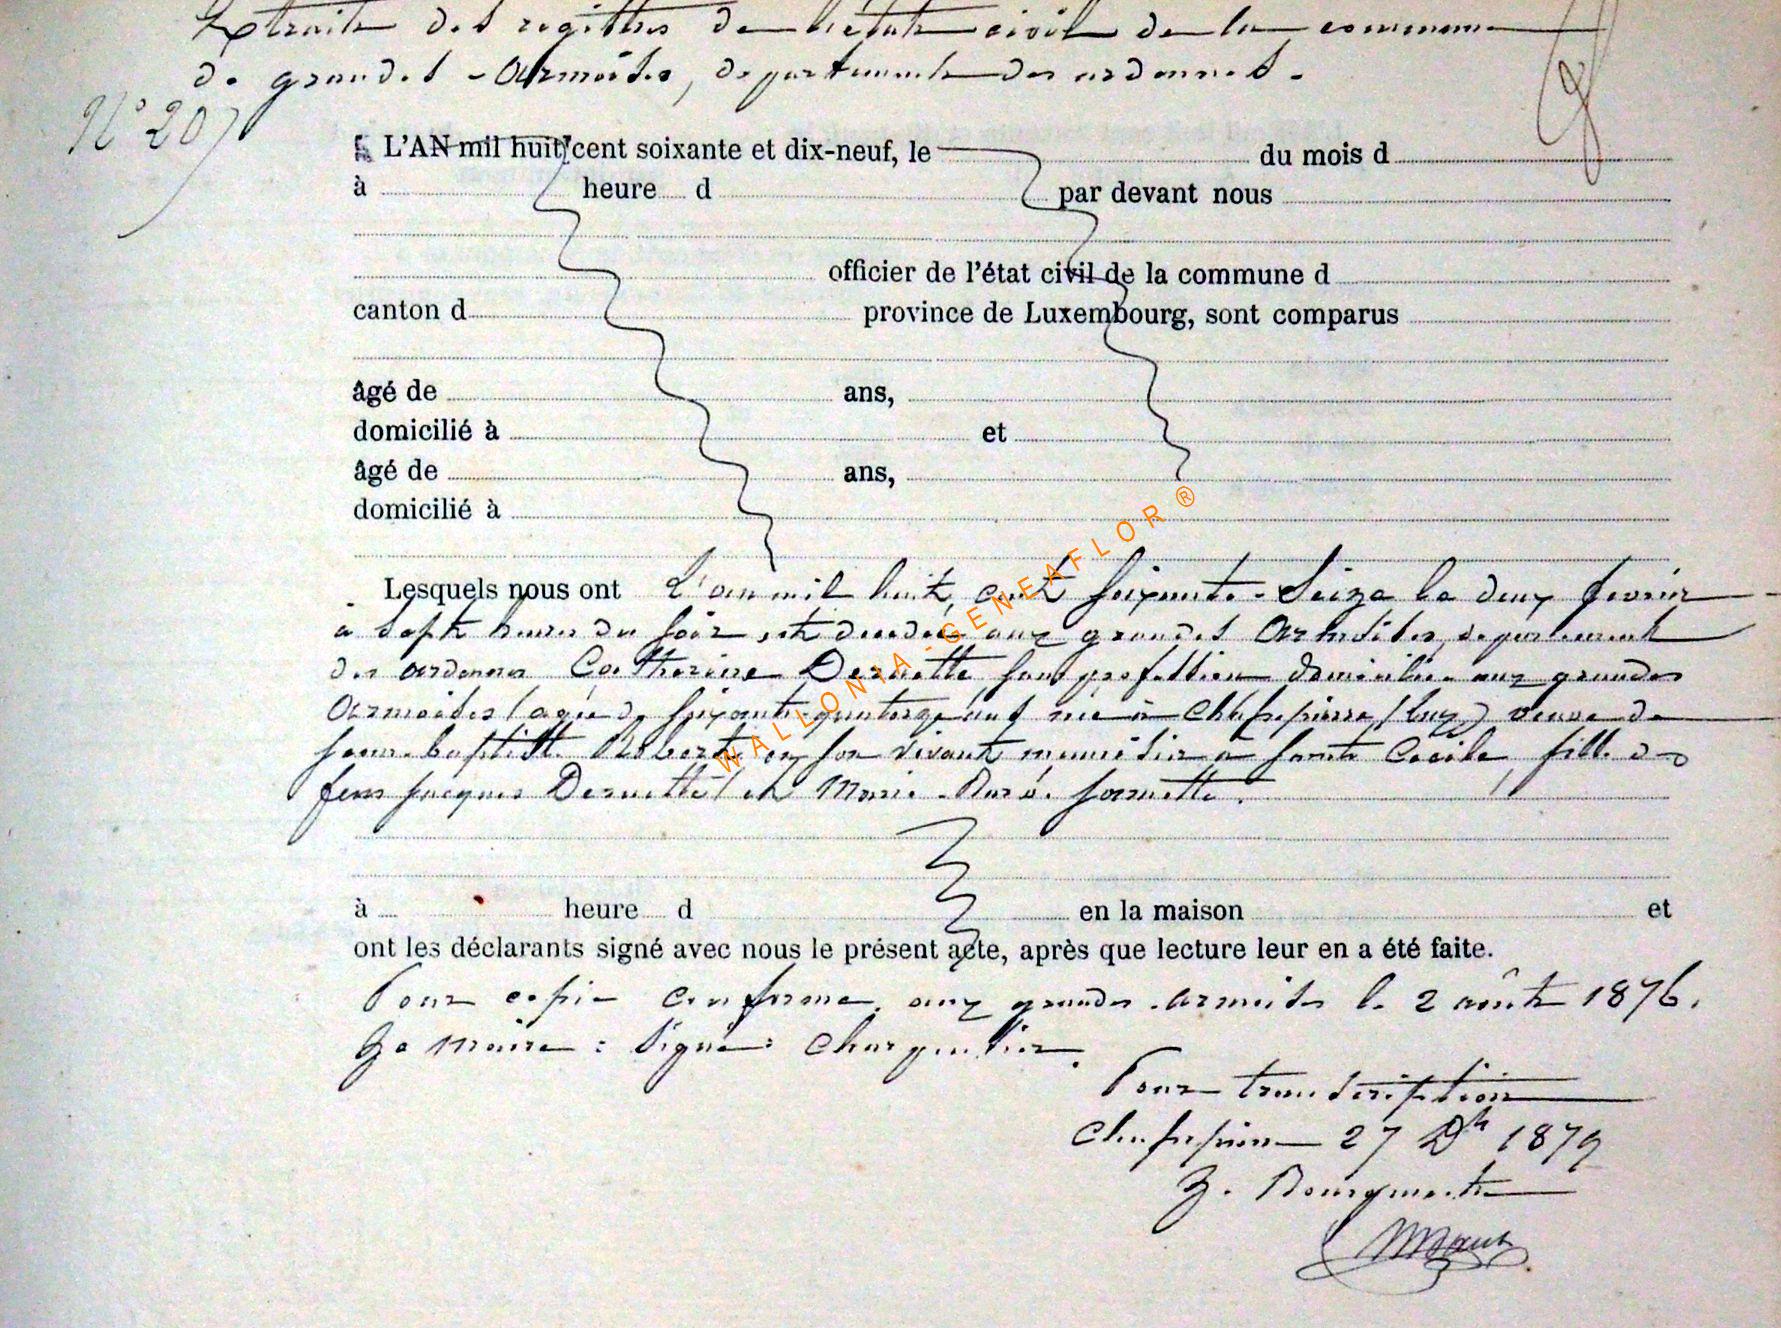 Extraits des registres de l'état civil de la commune
de grandes-armoises, département des ardennes.
N° 20
L'AN mil huit cent soixante et dix-neuf, le du mois d
à heure d par devant nous
officier de l'état civil de la commune d
canton d province de Luxembourg, sont comparus
âgé de ans,
domicilié à et
âgé de ans,
domicilié à
Lesquels nous ont L'an mil huit cent soixante-Seize le deux fevrier
à Sept heures du soir est decedée aux grandes armoises, departement
des ardennes Catherine Deruette sans profession domiciliée aux grandes
armoises agée de soixante-quatorze ans née à Chassepierre (lux) veuve de
jean-baptiste Robert en son vivant menuisier a Sainte Cecile, fille de
feus jacques Deruette et Marie-Rose
à heure d en la maison et
ont les déclarants signé avec nous le présent acte, après que lecture leur en a été faite.
Pour copie conforme, aux grandes-armoises le 2 août 1876.
Le maire : Signé: Charpentier.
Pour transcription
Chassepierre 27 1879
L. Bourgmestre
WALLONIA-GENEAFLOR ®